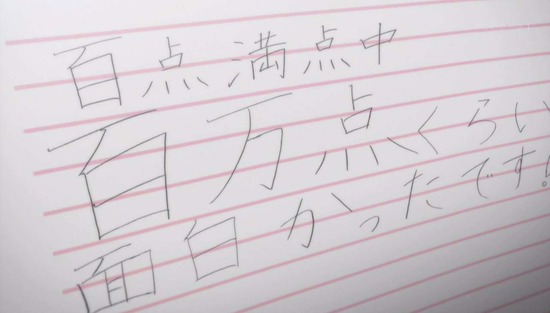 百点満点中
百万点くらい
面白かったです!